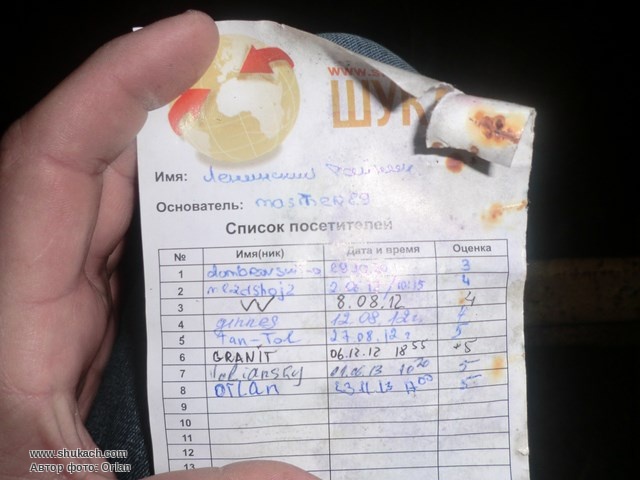 www.s
ШУКА
Имя: Ленинский
Основатель: master89
Список посетителей
№ Имя(ник) Дата и время Оценка
1 3
2 4
3 W 8.08.12 4
4 ginnes 12.08.12г.
5 Tan-Tol 27.08.12г. 5
6 GRANIT 06.12.12 18 55 5
7 5
8 Orlan 23.11.13 17 00 5
9
10
11
12
13
www.shukach.com
Автор фото: Orlan